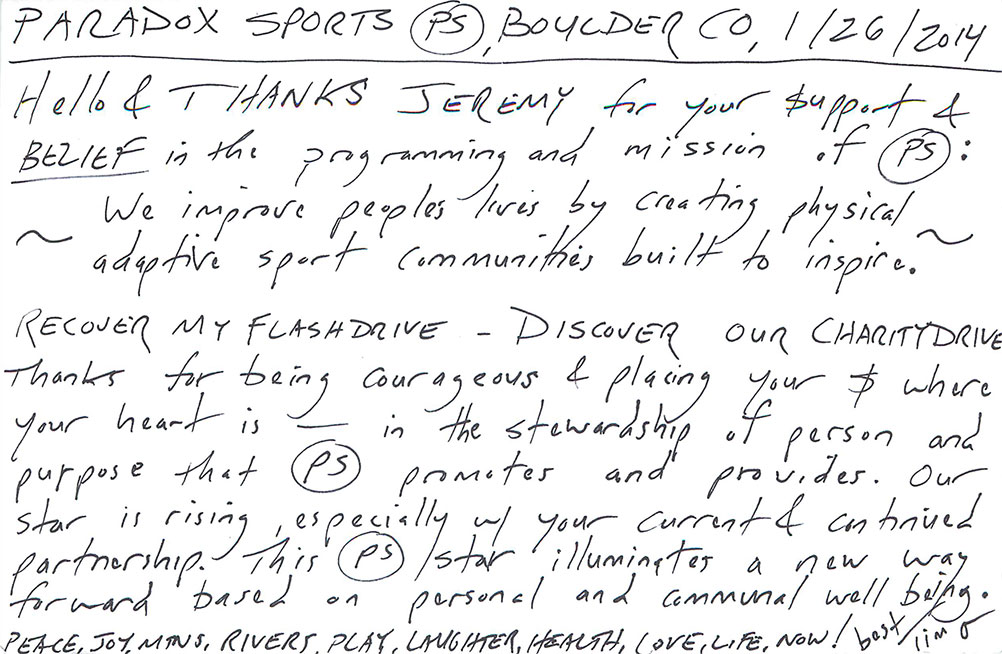 PARADOX SPORTS PS, BOULDER CO, 1/26/2014
Hello & THANKS JEREMY for your $upport &
BELIEF in the programming and mission of PS:
We improve peoples lives by creating physical
~ adaptive sport communities built to inspire. ~
RECOVER MY FLASHDRIVE - DISCOVER OUR CHARITYDRIVE
Thanks for being courageous & placing your $ where
your heart is — in the stewardship of person and
purpose that PS promotes and provides. Our
star is rising, especially w/ your current & continued
partnership. This PS star illuminates a new way
forward based on personal and communal well being.
PEACE, JOY, MTNS, RIVERS, PLAY, LAUGHTER, HEALTH, LOVE, LIFE, NOW! best/